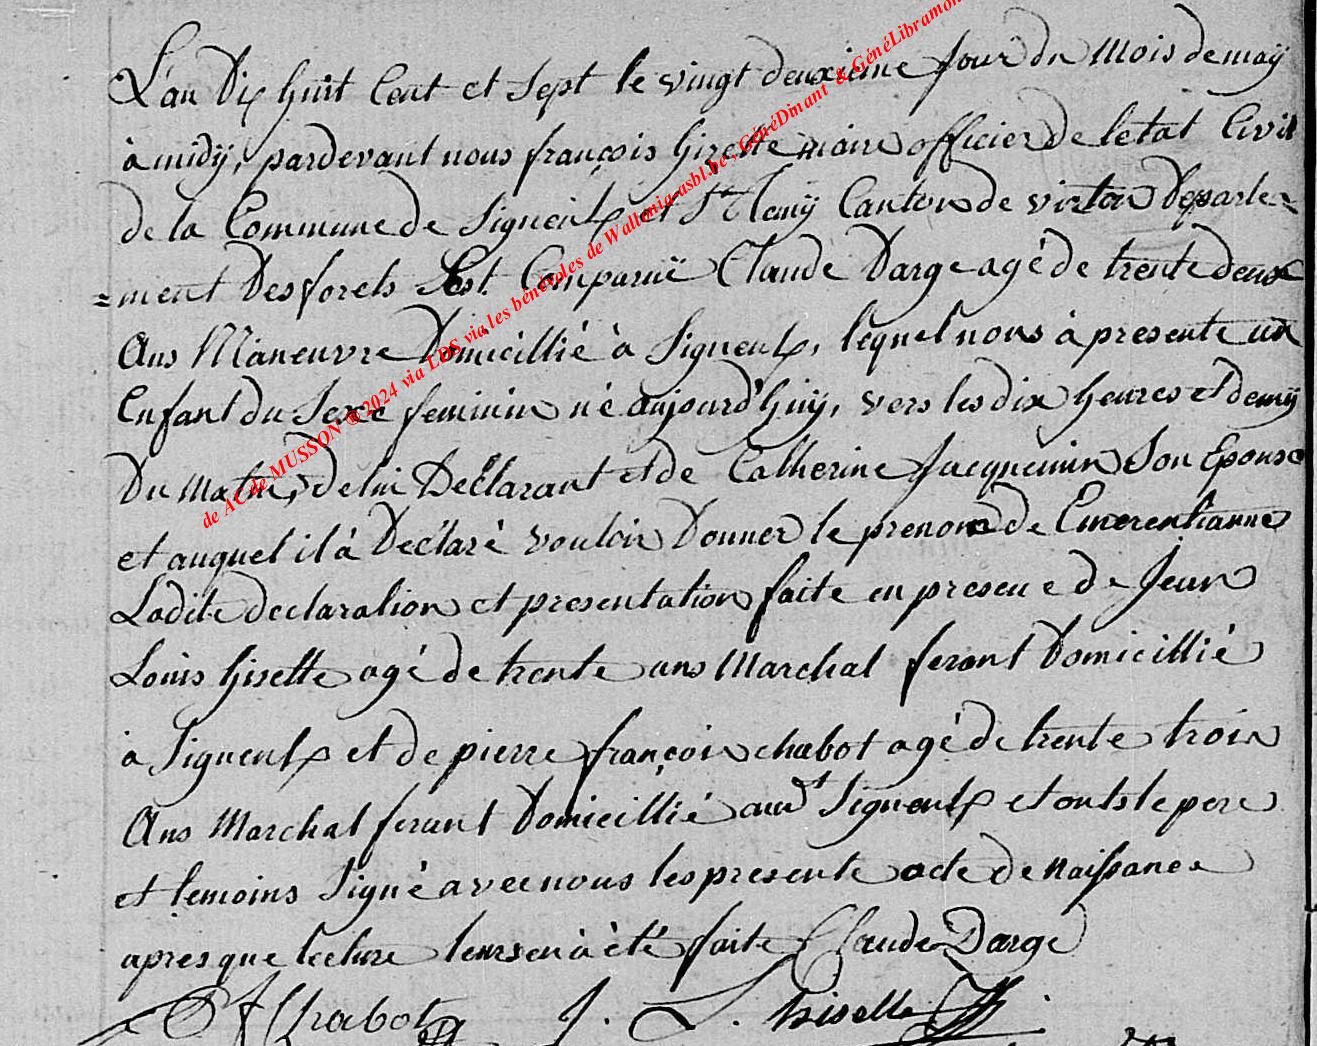 L'an Dix huit Cent et Sept le vingt deuxieme Jour du Mois de maÿ
à midÿ, pardevant nous françois Gisette maire officier de letat Civil
de la Commune de Signeulx et St Remÿ Canton de virton Departe=
=ment Desforets Est Comparuë Claude Darge agé de trente deux
Ans Maneuvre Domicillié à Signeulx, lequel nous à presente un
Enfant du Sexe feminin né aujourd'huÿ, vers les dix heures et demÿ
Du matin, de lui Declarant et de Catherine Jacquemin Son Epouse
et auquel il à Declaré vouloir Donner le prenom de Emerentianne
Ladite declaration et presentation faite en presence de Jean
Louis Gisette agé de trente ans Marchal ferant Domicillié
à Signeulx et de pierre françois chabot agé de trente trois
Ans Marchal ferant Domicillié audt Signeulx et onts le pere
et temoins Signé avec nous les presente acte de Naissance
apres que lecture leurs en à été faite Claude Darge
Chabot J. L. Giselle
de AC de MUSSON ®2024 via LDS via les bénévoles de Wallonia-asbl.be, GénéDinant & GénéLibramon